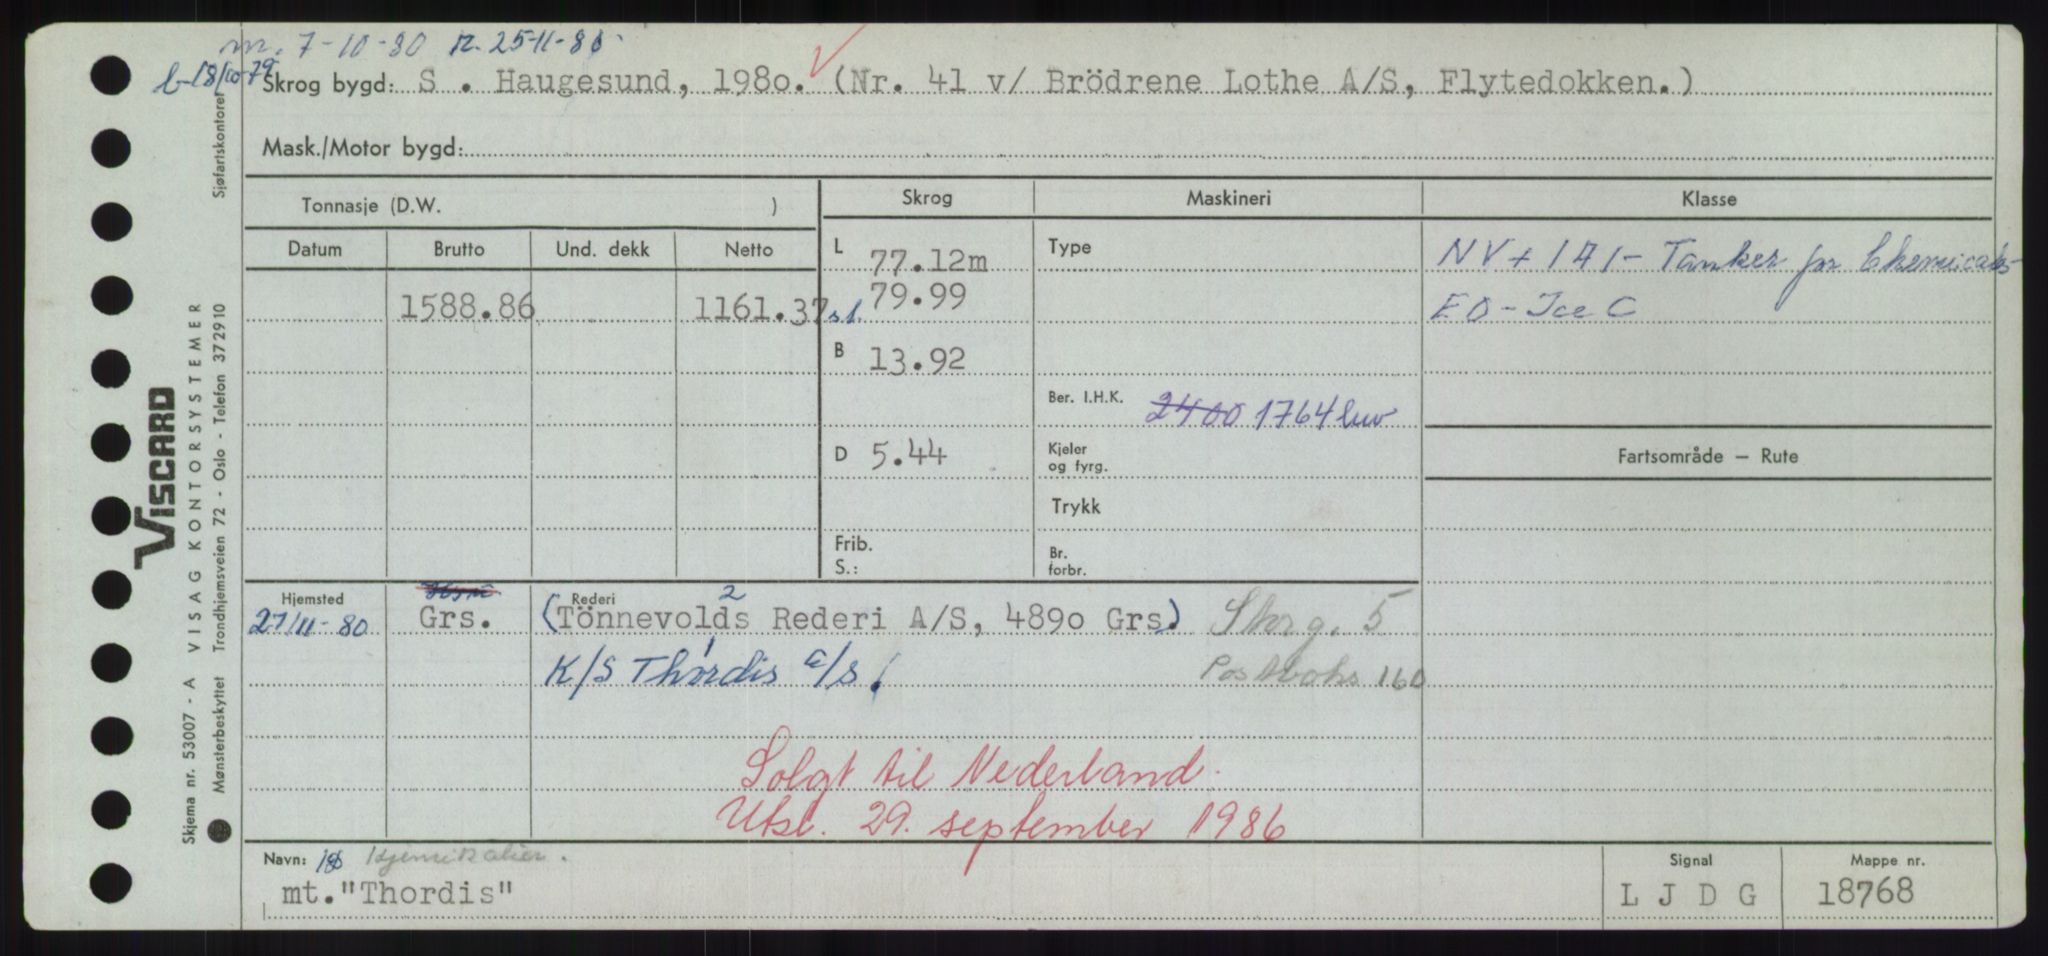 m. 7-10-80 R. 25-11-80
b-18/10-79
Skrog bygd: S . Haugesund, 198o. (Nr. 41 v/ Brödrene Lothe A/S, Flytedokken.)
Mask./Motor bygd:
Tonnasje (D.W. )
Skrog
Maskineri
Klasse
Datum Brutto Und. dekk Netto
L 77.12m
Type
NV + 1A1- Tanker for Chemicals-
1588.86 1161.37 s.l. 79.99
EO - Ice C
B 13.92
Ber. I.H.K. 2400 1764 kw
D 5.44
Kjeler
og fyrg.
Fartsområde – Rute
Trykk
Frib.
S.:
Br.
forbr.
Hjemsted
Rederi 2
27/11-80 Grs. (Tönnevolds Rederi A/S, 489o Grs.) Storg. 5
K/S Thordis a/s. Postboks 160
Solgt til Nederland.
Utsl. 29. september 1986
Navn: 18 Kjemikalier.
mt."Thordis"
Signal
L J D G
Mappe nr.
18768
VISCARD
VISAG KONTORSYSTEMER
Skjema nr. 53007 - A
Mønsterbeskyttet Trondhjemsveien 72 - Oslo - Telefon 372910
Sjøfartskontoret